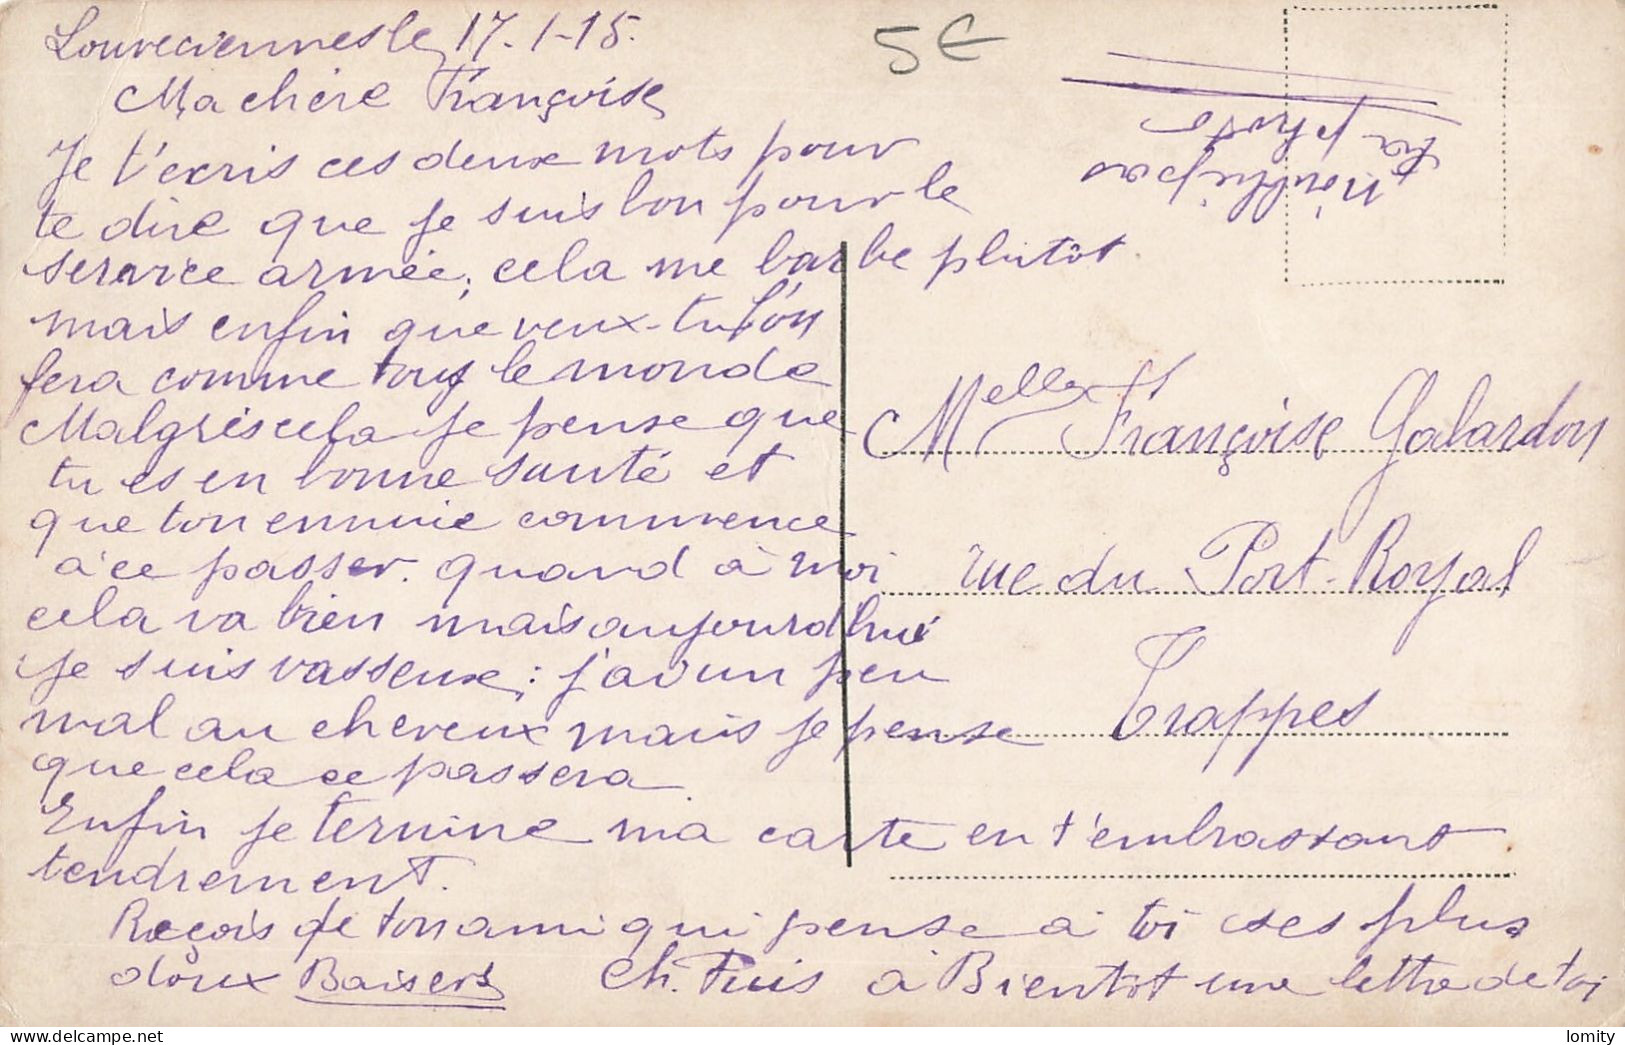 Louveciennes le 17-1-15.
5€
Ma chère Françoise
Je t'écris ces deux mots pour
te dire que je suis bon pour le
service armée, cela me barbe plutôt
mais enfin que veux-tu l'on
fera comme tous le monde
Malgrès cela je pense que
tu es en bonne santé et
que ton ennuie commence
à ce passer. quand à moi
cela va bien mais aujourd'hui
je suis vasseux; j'ai un peu
mal au cheveux mais je pense
que cela ce passera.
Enfin je termine ma carte en t'embrassant
tendrement.
Reçois de ton ami qui pense à toi ses plus
doux Baisers Ch. Puis à Bientôt une lettre de toi
n'oublie pas
ta photo
Melle Françoise Galardon
rue du Port-Royal
Trappes
lomity